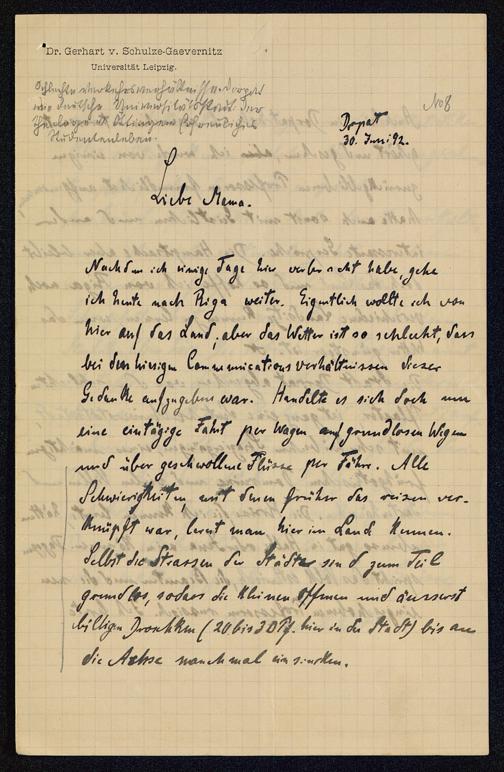 Dr. Gerhart v. Schulze-Gaevernitz
Universität Leipzig.
Schlechte Verkehrsverhältnisse Dorpat
deutsche Universitätsstadt. Der
Theologe
Studentenleben.
No 8
Dorpat
30. Juni 92.
Liebe Mama.
Nachdem ich einige Tage hier verbracht habe, gehe
ich heute nach Riga weiter. Eigentlich wollte ich von
hier auf das Land, aber das Wetter ist so schlecht, dass
bei den hiesigen Communicationsverhältnissen dieser
Gedanke aufzugeben war. Handelte es sich doch um
eine eintägige Fahrt per Wagen auf grundlosen Wegen
und über geschwollene Flüsse per Fähre. Alle
Schwierigkeiten, mit denen früher das reisen ver-
knüpft war, lernt man hier im Land kennen.
Selbst die Strassen der Städte sind zum Teil
grundlos, sodass die kleinen offenen und äusserst
billigen Droschken (20 bis 30 Pf. hier in der Stadt) bis an
die Achse manchmal einsinken.